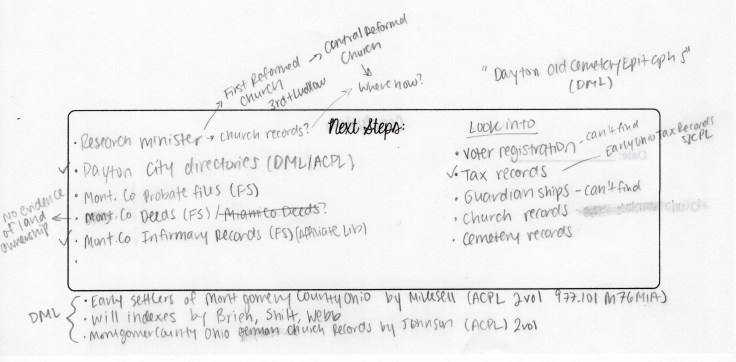 First Reformed Church → Central Reformed Church
3rd + Ludlow
Where now?
"Dayton Old Cemetery Epitaphs"
(DML)
Next Steps:
• Research minister → church records?
✓ • Dayton City directories (DML/ACPL)
• Mont. Co Probate files (FS)
• Mont. Co Deeds (FS) / Miami Co Deeds?
No evidence of land ownership
✓ • Mont. Co Infirmary Records (FS) (Affiliate Lib)
•
Look into
• Voter registration - can't find
✓ • Tax records
Early Ohio Tax Records
• Guardianships - can't find
• Church records
• Cemetery records
DML
• Early settlers of Montgomery County Ohio by Mikesell (ACPL 2 vol 977.101 M76MIA)
• Will indexes by Brien, Shilt, Webb
• Montgomery County Ohio german church records by Johnson (ACPL) 2 vol